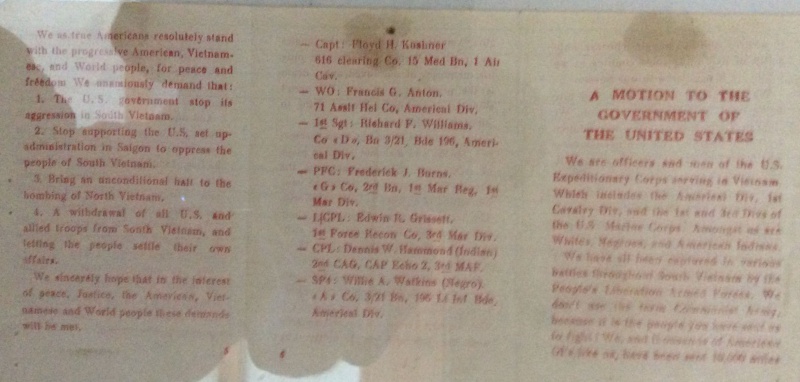 We as true Americans resolutely stand
with the progressive American, Vietnam-
ese, and World people, for peace and
freedom We unanimously demand that:
1. The U.S. government stop its
aggression in South Vietnam.
2. Stop supporting the U.S. set up-
administration in Saigon to oppress the
people of South Vietnam.
3. Bring an unconditional halt to the
bombing of North Vietnam.
4. A withdrawal of all U.S. and
allied troops from South Vietnam, and
letting the people settle their own
affairs.
We sincerely hope that in the interest
of peace, Justice, the American, Viet-
namese and World people these demands
will be met.
— Capt: Floyd H. Kushner
616 clearing Co. 15 Med Bn, 1 Air
Cav.
— WO: Francis G. Anton.
71 Asslt Hel Co, Americal Div.
— 1st Sgt: Richard F. Williams.
Co «D», Bn 3/21, Bde 196, Ameri-
cal Div.
— PFC: Frederick J. Burns.
«G» Co, 2rd Bn, 1st Mar Reg, 1st
Mar Div.
— L/CPL: Edwin R. Grissett.
1st Force Recon Co, 3rd Mar Div.
— CPL: Dennis W. Hammond (Indian)
2nd CAG, CAP Echo 2, 3rd MAF.
— SP4: Willie A. Watkins (Negro).
«A» Co, 3/21 Bn, 196 Lt Inf Bde,
Americal Div.
A MOTION TO THE
GOVERNMENT OF
THE UNITED STATES
We are officers and men of the U.S.
Expeditionary Corps serving in Vietnam
Which includes the Americal Div, 1st
Cavalry Div, and the 1st and 3rd Divs of
the U.S Marine Corps. Amongst us are
Whites, Negroes, and American Indians.
We have all been captured in various
battles throughout South Vietnam by the
People's Liberation Armed Forces. We
don't use the term Communist Army,
because it is the people you have sent us
to fight! We, and thousands of American
GI's like us, have been sent 10,000 miles